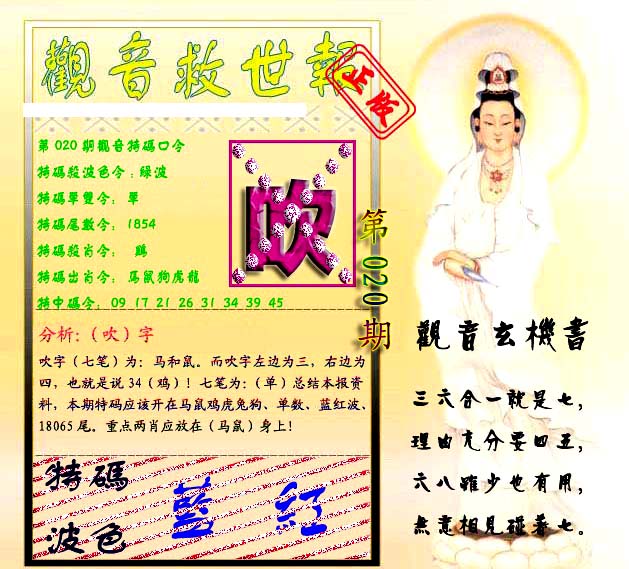 觀音救世報
正版
第020期觀音特碼口令
特碼殺波色令:綠波
特碼單雙令: 單
特碼尾數令: 1854
特碼殺肖令: 鷄
特碼出肖令: 馬鼠狗虎龍
特中碼令: 09 17 21 26 31 34 39 45
吹
第020期
分析:(吹)字
吹字(七笔)为:马和鼠。而吹字左边为三,右边为
四,也就是说34(鸡)!七笔为:(单)总结本报资
料,本期特码应该开在马鼠鸡虎兔狗、单数、蓝红波、
18065尾。重点两肖应放在(马鼠)身上!
特碼
波色
藍 紅
觀音玄機書
三六合一就是七,
理由充分要四五,
六八雖少也有用,
無意相見碰着七。